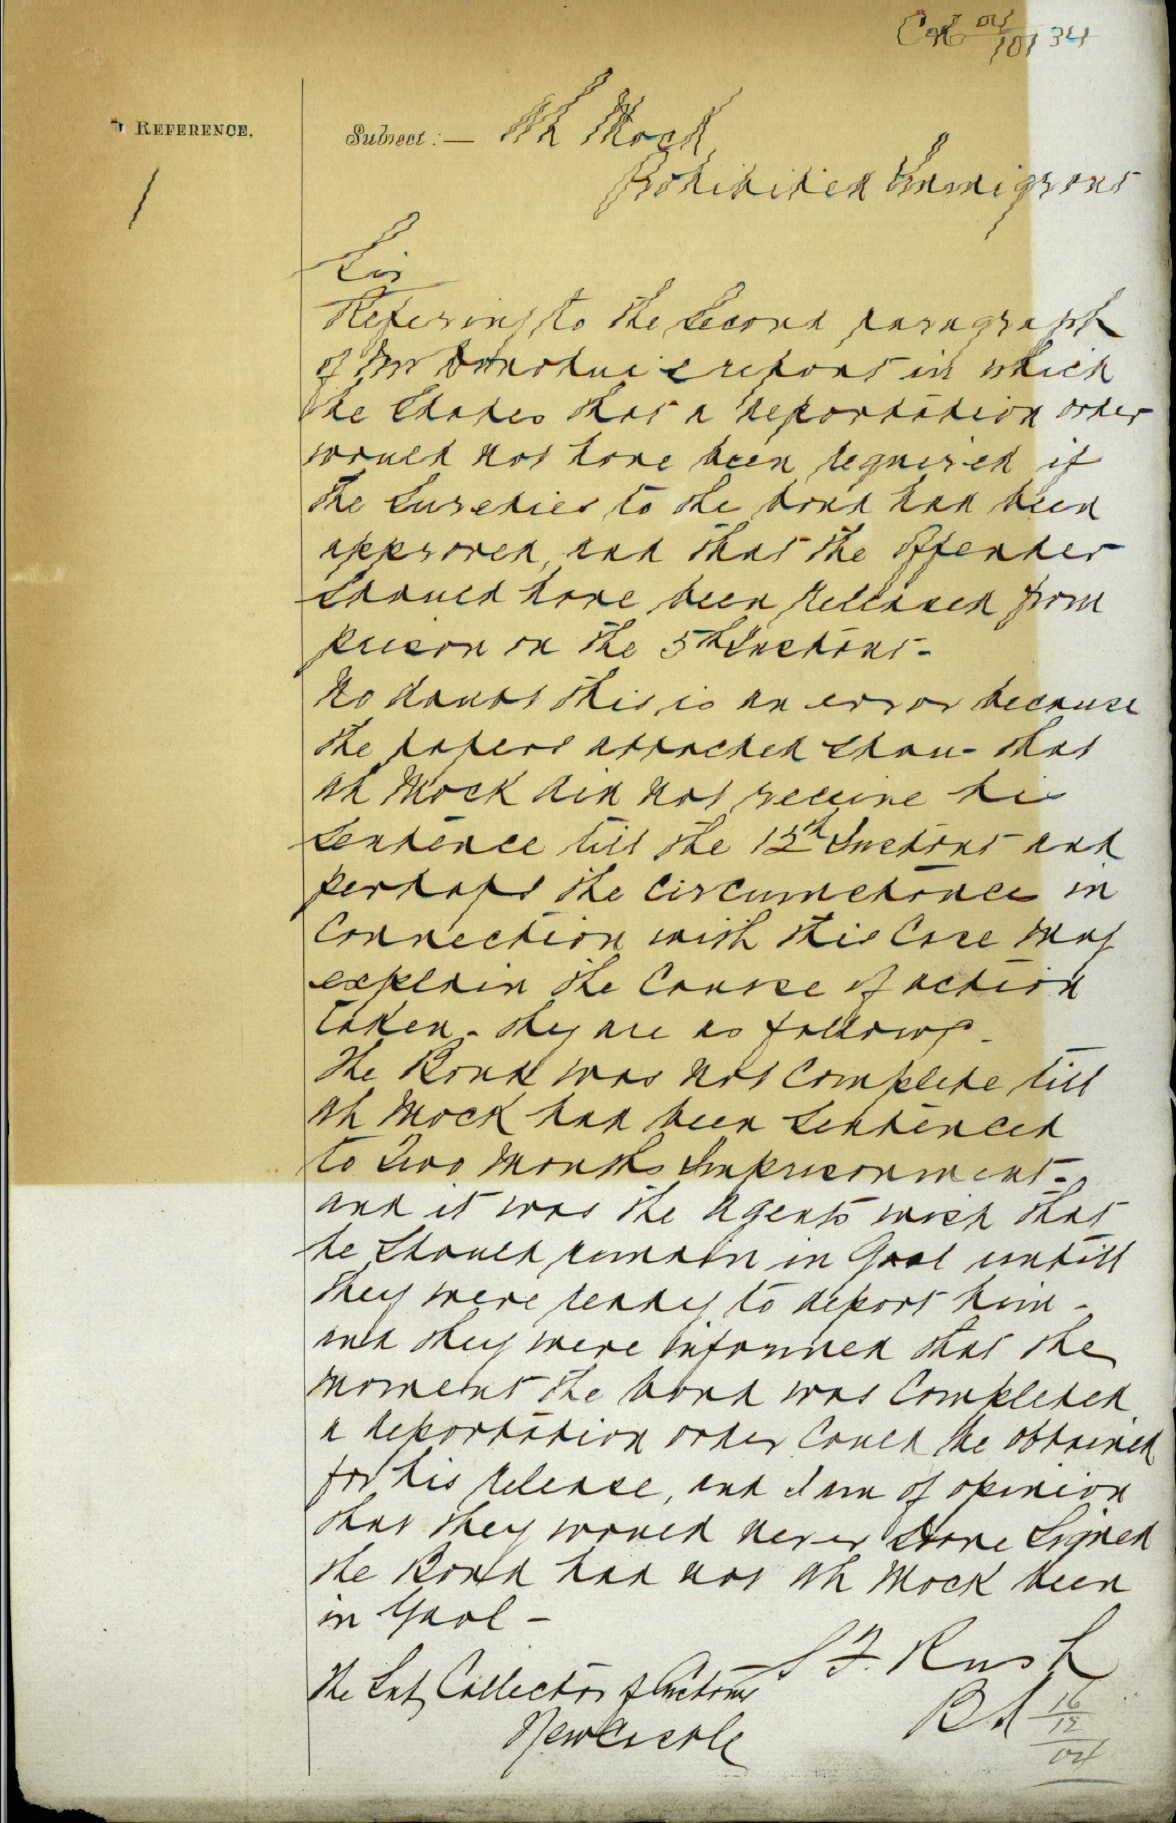 REFERENCE.
Subject:— Ah Mock
Prohibited Immigrant
Sir
Refering to the Second paragraph
of Mr Donohue's report in which
he States that a deportation order
would not have been required if
the Sureties to the bond had been
approved, and that the Offender
Should have been Released from
prison on the 5th Instant-
No doubt this is an error because
the papers attached show that
Ah Mock did not receive his
Sentence till the 12th Instant and
perhaps the Circumstances in
Connection with this Case may
explain the Course of action
taken- they are as follows-
The Bond was not Complete till
Ah Mock had been Sentenced
to Two Months Imprisonment-
and it was the Agents wish that
he Should remain in Gaol untill
they were ready to deport him-
and they were informed that the
moment the bond was Completed
a deportation order Could be obtained
for his release, and I am of opinion
that they would never have Signed
the Bond had not Ah Mock been
in Gaol-
S F. Rush
The Sub Collector of Customs
Newcastle
16
12
04